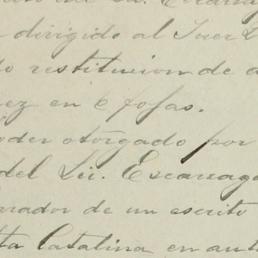 dirigido al Juez
restitucion de
ez en 6 fojas.
oder otorgado por
del Lic. Escarraga
rador de un escrito
ta Catalina en aut